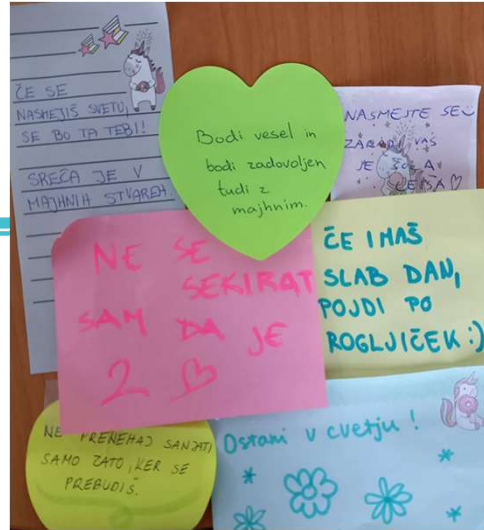 ČE SE
NASMEJIŠ SVETU,
SE BO TA TEBI!
SREČA JE V
MAJHNIH STVAREH.
Bodi vesel in
bodi zadovoljen
tudi z
majhnim.
NASMEJTE SE
ZARADI VAS
JE
NE SE
SEKIRAT
SAM DA JE
2
ČE IMAŠ
SLAB DAN,
POJDI PO
ROGLJIČEK :)
NE PRENEHAJ SANJATI
SAMO ZATO, KER SE
PREBUDIŠ.
Ostani v cvetju!